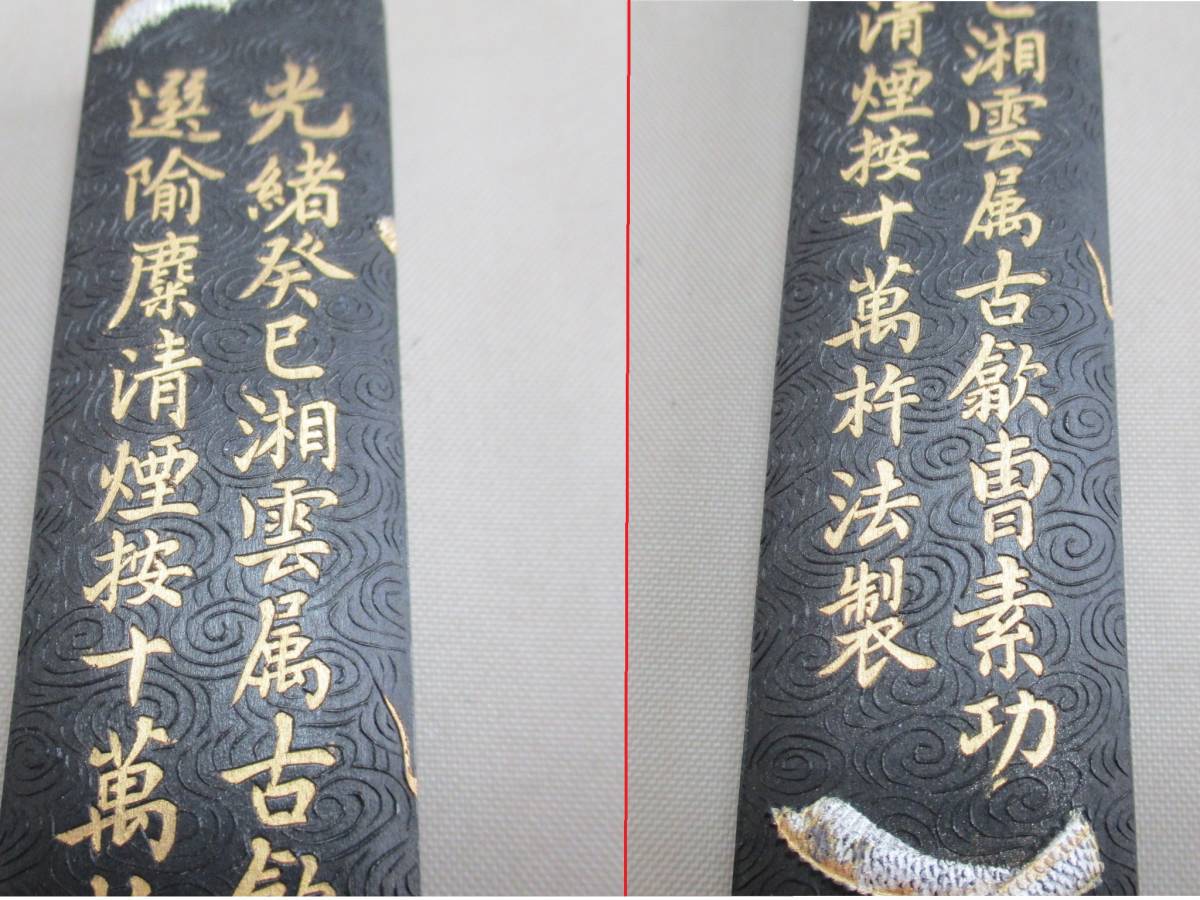 光緒癸巳湘雲属古歙
選隃糜清煙按十萬
湘雲属古歙曹素功
清煙按十萬杵法製